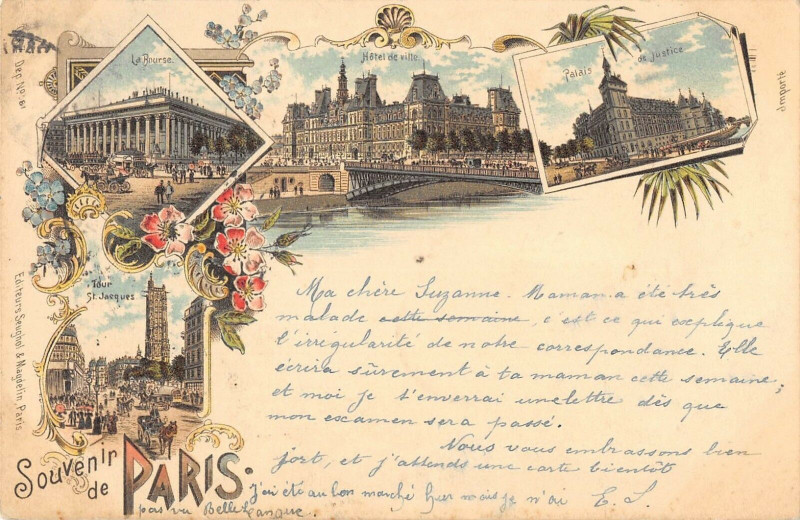 La Bourse.
Hôtel de ville.
Palais de Justice
Importé
Dep No. 61
Tour
St. Jacques
Editeurs Seughol & Magdelin, Paris
Souvenir
de PARIS.
Ma chère Suzanne. Maman a été très
malade cette semaine, c'est ce qui explique
l'irrégularité de notre correspondance. Elle
écrira sûrement à ta maman cette semaine;
et moi je t'enverrai une lettre dès que
mon examen sera passé.
Nous vous embrassons bien
fort, et j'attends une carte bientôt
J'ai été au bon marché hier mais je n'ai E. S.
pas vu Belle